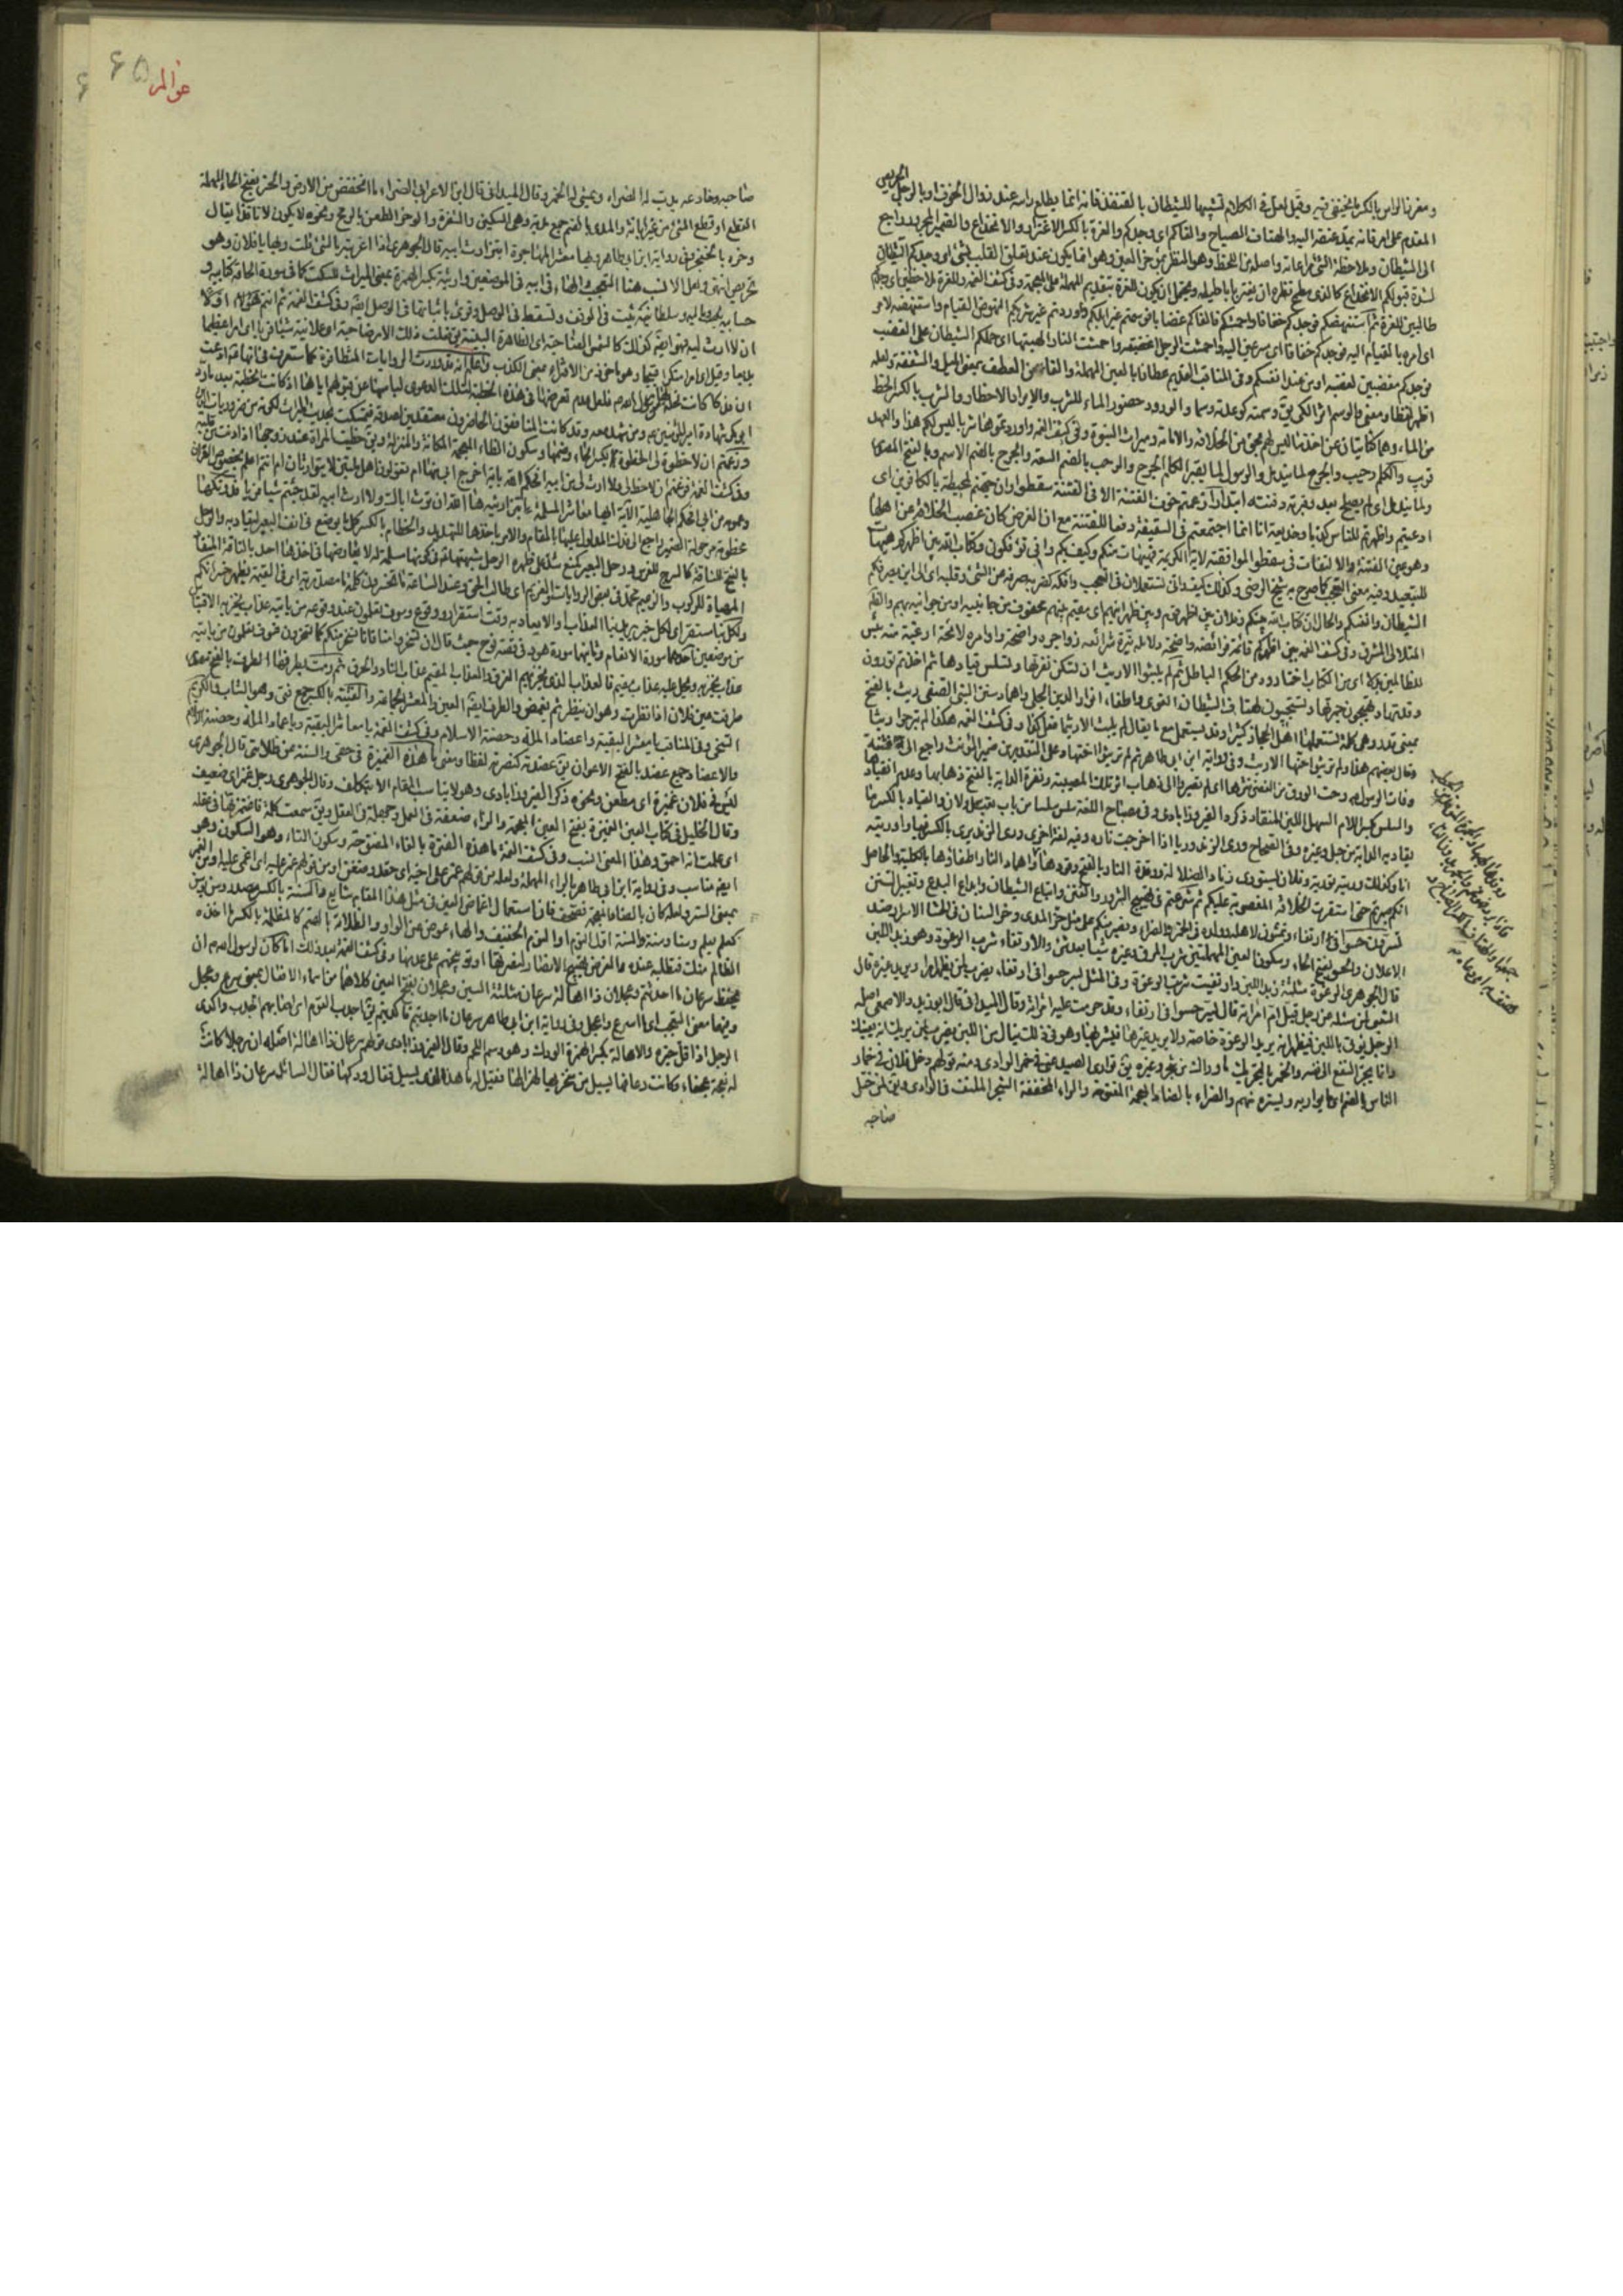 ومغرز الراس بالكسر ما يختفي فيه وقيل لعل في الكلام تشبيها للشيطان بالقنفذ فانه انما يطلع راسه عند زوال الخوف او بالرجل الحريص
المقدم على امر فانه يمد عنقه اليه والهتاف الصياح والفاكم اي وجدكم والغرة بالكسر الاغترار والانخداع والضمير المجرور راجع
الى الشيطان وملاحظة الشئ مراعاته واصله من اللحظ وهو النظر بمؤخر العين وهو انما يكون عند تعلق القلب بشئ اي وجدكم الشيطان
لشدة قبولكم للانخداع كالذي مطمح نظره ان يغتر باباطيله ويحتمل ان يكون للعزة بتقديم المهملة على المعجمة وفي كشف الغمة وللعزة ملاحظين اي وجدكم
طالبين للعزة ثم استنهضكم فوجدكم خفافا واحمشكم فالفاكم غضابا فوسمتم غير ابلكم واوردتم غير شربكم النهوض القيام واستنهضه لامر
اي امره بالقيام اليه فوجدكم خفافا اي مسرعين اليه واحمشت الرجل اغضبته واحمشت النار الهبتها اي حملكم الشيطان على الغضب
فوجدكم مغضبين لغضبه او من عند انفسكم وفي المناقب القديم عطافا بالعين المهملة والفاء من العطف بمعنى الميل والشفقة ولعله
اظهر لفظا ومعنى والوسم اثر الكي يق وسمته كوعدته وسما والورود حضور الماء للشرب والايراد الاحضار والشرب بالكسر الحظ
من الماء وهما كنايتان عن اخذ ما ليس لهم بحق من الخلافة والامامة وميراث النبوة وفي كشف الغمة واوردتموها شربا ليس لكم هذا والعهد
قريب والكلم رحيب والجرح لما يندمل والرسول لما يقبر الكلم الجرح والرحب بالضم السعة والجرح بالضم الاسم وبالفتح المصدر
ولما يندمل اي لم يصلح بعد وقبرته دفنته ابتدارا زعمتم خوف الفتنة الا في الفتنة سقطوا وان جهنم لمحيطة بالكافرين اي
ادعيتم واظهرتم للناس كذبا وخديعة انا انما اجتمعنا في السقيفة دفعا للفتنة مع ان الغرض كان غصب الخلافة عن اهلها
وهو عين الفتنة والالتفات في سقطوا لموافقة الاية الكريمة فهيهات منكم وكيف بكم واني تؤفكون وكتاب الله بين اظهركم هيهات
للتبعيد وفيه معنى التعجب كما صرح به شيخ الرضي وكذلك كيف واني تستعملان في التعجب وافكه كضربه صرفه عن الشئ وقلبه اي الى اين يصرفكم
الشيطان وانفسكم والحال ان كتاب الله بينكم وفلان بين اظهر قوم وبين ظهرانيهم اي مقيم بينهم محفوف من جانبيه او من جوانبه بهم
قائمة فرائضه واضحة دلائله نيرة شرائعه زواجره واضحة واوامره لائحة ارغبة عنه
للظالمين بدلا اي من الكتاب ما اختاروه من الحكم الباطل ثم لم تلبثوا الا ريث ان تسكن نفرتها ويسلس قيادها ثم اخذتم تورون
وقدتها وتهيجون جمرتها وتستجيبون لهتاف الشيطان الغوي واطفاء انوار الدين الجلي واهماد سنن النبي الصفي ريث بالفتح
بمعنى قدر وهي كلمة يستعملها اهل الحجاز كثيرا وقد يستعمل مع ما يقال لم يلبث الا ريثما فعل كذا وفي كشف الغمة هكذا ثم لم تبرحوا ريثا
وقال بعضهم هذا ولم تريثوا اختها الا ريث وفي رواية ابن ابي طاهر ثم لم تريثوا اختها وعلى التقديرين ضمير المؤنث راجع الى فتنة
وفات الرسول
والسلس بكسر اللام السهل اللين المنقاد ذكره الفيروزابادي وفي مصباح اللغة سلس سلسا من باب تعب سهل ولان والقياد بالكسر ما
يقاد به الدابة من حبل وغيره وفي الصحاح ورى الزند يري وريا اذا خرجت ناره وفيه لغة اخرى وري الزند يري بالكسر فيها واوريته
انا وكذلك وريته تورية وفلان يستوري زناد الضلالة ووقدة النار بالفتح وقودها واهماد النار اطفاؤها بالكلية والحاصل
انكم صبرتم حتى استقرت الخلافة المغصوبة عليكم ثم شرعتم في تهييج الشرور والفتن واتباع الشيطان وابداع البدع وتغيير السنن
تسرون حسوا في ارتغاء وتمشون لاهله وولده في الخمر والضراء ونصبر منكم على مثل حز المدى ووخز السنان في الحشا الاسرار ضد
الاعلان والحسو بفتح الحاء وسكون السين المهملتين شرب المرق وغيره شيئا بعد شئ والارتغاء شرب الرغوة وهو زبد اللبن
قال الجوهري الرغوة مثلثة زبد اللبن وارتغيت شربت الرغوة وفي المثل يسر حسوا في ارتغاء يضرب لمن يظهر امرا ويريد غيره قال
الشعبي لمن سئله عن رجل قبل ام امراته قال يسر حسوا في ارتغاء وقد حرمت عليه امراته وقال الميداني قال ابو زيد والاصمعي اصله
الرجل يؤتى باللبن فيظهر انه يريد الرغوة خاصة ولا يريد غيرها فيشربها وهو في ذلك ينال من اللبن يضرب لمن يريك انه يعينك
وانما يجر النفع الى نفسه والخمر بالتحريك ما واراك من شجر وغيره يق توارى الصيد عني في خمر الوادي ومنه قولهم دخل فلان في خمار
الناس بالضم اي ما يواريه ويستره منهم والضراء بالضاد المعجمة المفتوحة والراء المخففة الشجر الملتف في الوادي ويق لمن ختل
صاحبه
عوالم ۶۵
صاحبه وخادعه يدب له الضراء ويمشي له الخمر وقال الميداني قال ابن الاعرابي الضراء ما انخفض من الارض والحز بفتح الحاء المهملة
القطع او قطع الشئ من غير ابانة والمدى بالضم جمع مدية وهي السكين والشفرة والوخز الطعن بالرمح ونحوه لا يكون نافذا يقال
وخزه بالخنجر وفي رواية ابن ابي طاهر ويها معشر المهاجرة ابتز ارث ابيه قال الجوهري اذا اغريته بالشئ قلت ويها يا فلان وهو
تحريض انتهى ولعل الانسب هنا التعجب والهاء في ابيه في الموضعين وارثيه بكسر الهمزة بمعنى الميراث للسكت كما في سورة الحاقة كتابيه و
حسابيه وماليه وسلطانيه تثبت في الوقف وتسقط في الوصل وقرئ باثباتها في الوصل ايضا وفي كشف الغمة ثم انتم اولا
ان لا ارث ليه فهو ايضا كذلك كالشمس الضاحية اي الظاهرة البينة يق فعلت ذلك الامر ضاحية اي علانية شيئا فريا اي امرا عظيما
بديعا وقيل اي امرا منكرا قبيحا وهو ماخوذ من الافتراء بمعنى الكذب واعلم انه قد وردت الروايات المتظافرة كما ستعرف في انها ادعت
ان فدكا كانت نحلة لها من رسول الله فلعل عدم تعرضها في هذه الخطبة لتلك الدعوى لياسها عن قبولهم اياها اذ كانت الخطبة بعد ما رد
ابو بكر شهادة امير المؤمنين ومن شهد معه وقد كانت المنافقون الحاضرون معتقدين لصدقه فتمسكت بحديث الميراث لكونه من ضروريات الدين
وزعمتم ان لا حظوة لي الحظوة بكسر الحاء وضمها وسكون الظاء المعجمة المكانة والمنزلة ويق حظيت المراة عند زوجها اذا دنت من قلبه
وفي كشف الغمة فزعمتم ان لا حظ لي ولا ارث لي من ابيه افحكم الله باية اخرج ابي منها ام تقولون اهل ملتين لا يتوارثان ام انتم اعلم بخصوص القران
وعمومه من ابي افحكم الجاهلية الآية ايها معاشر المسلمة ءابتز ارثيه ءالله ان ترث اباك ولا ارث ابيه لقد جئتم شيئا فريا فدونكها
مخطومة مرحولة الضمير راجع الى فدك المدلول عليها بالمقام والامر باخذها للتهديد والخطام بالكسر كل ما يوضع في انف البعير ليقاد به والرحل
بالفتح للناقة كالسرج للفرس ورحل البعير كمنع شد على ظهره الرحل شبهتها في كونها مسلمة لا يعارضها في اخذها احد بالناقة المنقادة
المهياة للركوب والزعيم محمد في بعض الروايات والغريم اي طالب الحق وعند الساعة ما تخسرون كلمة ما مصدرية اي في القيمة يظهر خسرانكم
ولكل نبأ مستقر اي لكل خبر يريد نبا العذاب والايعاد به وقت استقرار ووقوع وسوف تعلمون عند وقوعه من ياتيه عذاب يخزيه الاقتباس
من موضعين احدهما سورة الانعام وثانيهما سورة هود في قصة نوح حيث قال ان تسخروا منا فانا نسخر منكم كما تسخرون فسوف تعلمون من ياتيه
عذاب يخزيه ويحل عليه عذاب مقيم فالعذاب الذي يخزيهم الغرق والعذاب المقيم عذاب النار والحرق ثم رمت بطرفها الطرف بالفتح مصدر
طرفت عين فلان اذا نظرت وهو ان ينظر ثم يغمض والطرف ايضا العين والمعشر الجماعة والفتية بالكسر جمع فتى وهو الشاب والكريم
السخي وفي المناقب يا معشر البقية واعضاد الملة وحصنة الاسلام وفي كشف الغمة يا معاشر البقية ويا عماد الملة وحصنة الاسلام
والاعضاد جمع عضد بالفتح الاعوان يق عضدته كنصرته لفظا ومعنى ما هذه الغميزة في حقي والسنة عن ظلامتي قال الجوهري
ليس في فلان غميزة اي مطعن ونحوه ذكر الفيروزابادي وهو لا يناسب المقام الا بتكلف وقال الجوهري رجل غمز اي ضعيف
وقال الخليل في كتاب العين الغميزة بفتح الغين المعجمة والزاء ضعفة في العمل وجهلة في العقل ويق سمعت كلمة فاغتمزتها في عقله
اي علمت انه احمق وهذا المعنى انسب وفي كشف الغمة ما هذه الفترة بالفاء المفتوحة وسكون التاء وهو السكون وهو
ايضا مناسب وفي رواية ابن ابي طاهر بالراء المهملة ولعله من قولهم غمر على اخيه اي حقد وضغن او من قولهم غمر عليه اي اغمي عليه او من الغمر
بمعنى الستر ولعله كان بالضاد المعجمة فصحف فان استعمال اغماض العين في مثل هذا المقام شايع والسنة بالكسر مصدر وسن يوسن
كعلم يعلم وسنا وسنة والسنة اول النوم او النوم الخفيف والهاء عوض عن الواو والظلامة بالضم كالمظلمة بالكسر ما اخذه
الظالم منك فتطلبه عنده والغرض تهييج الانصار لنصرتها او توبيخهم على عدمها وفي كشف الغمة بعد ذلك اما كان رسول الله ان
يحفظ سرعان ما احدثتم وعجلان ذا اهالة سرعان مثلثة السين وعجلان بفتح العين كلاهما من اسماء الافعال بمعنى سرع وعجل
وفيهما معنى التعجب اي ما اسرع واعجل وفي رواية ابن ابي طاهر سرعان ما اجدبتم فاكديتم يق اجدب القوم اي اصابهم الجدب واكدى
الرجل اذا قل خيره والاهالة بكسر الهمزة الودك وهو دسم اللحم وقال الفيروزابادي قولهم سرعان ذا اهالة اصله ان رجلا كانت
له نعجة عجفاء وكانت رعامها يسيل من منخريها لهزالها فقيل له ما هذا الذي يسيل فقال ودكها فقال السائل سرعان ذا اهالة